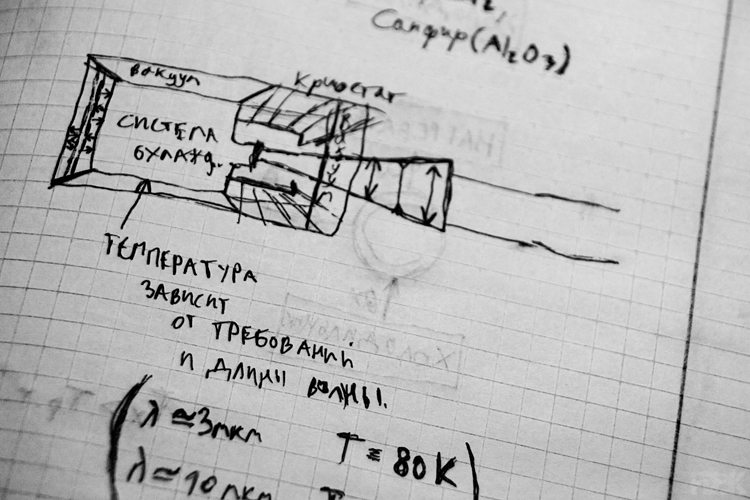 Сапфир (Al₂O₃)
вакуум
Криостат
СИСТЕМА
ОХЛАЖД.
ТЕМПЕРАТУРА
ЗАВИСИТ
ОТ ТРЕБОВАНИЙ
И ДЛИНЫ ВОЛНЫ.
λ ≃ 3мкм T ≡ 80K
λ ≃ 10мкм T